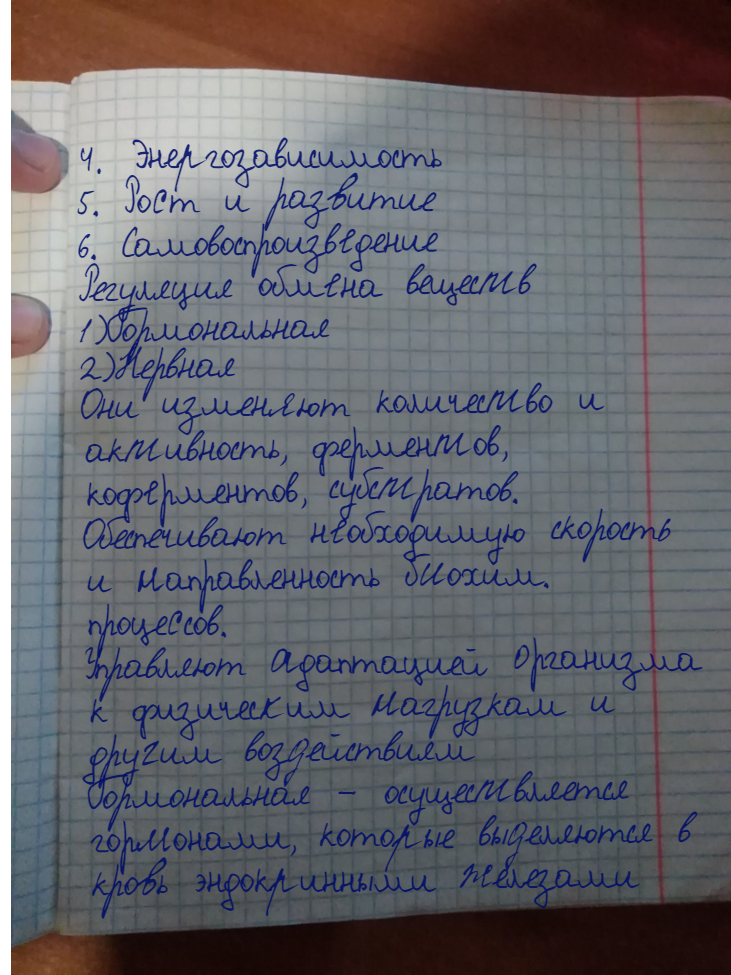 4. Энергозависимость
5. Рост и развитие
6. Самовоспроизведение
Регуляция обмена веществ
1) Гормональная
2) Нервная
Они изменяют количество и
активность, ферментов,
коферментов, субстратов.
Обеспечивают необходимую скорость
и направленность биохим.
процессов.
Управляют адаптацией организма
к физическим нагрузкам и
другим воздействиям
Гормональная – осуществляется
гормонами, которые выделяются в
кровь эндокринными железами